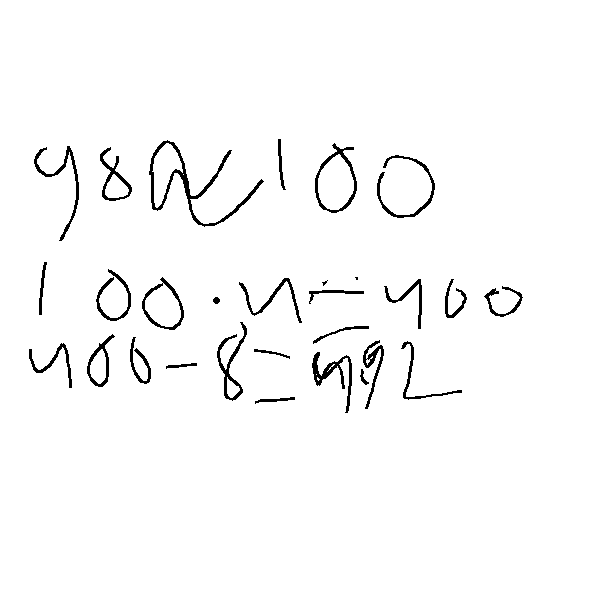 98≈100
100·4=400
400-8=